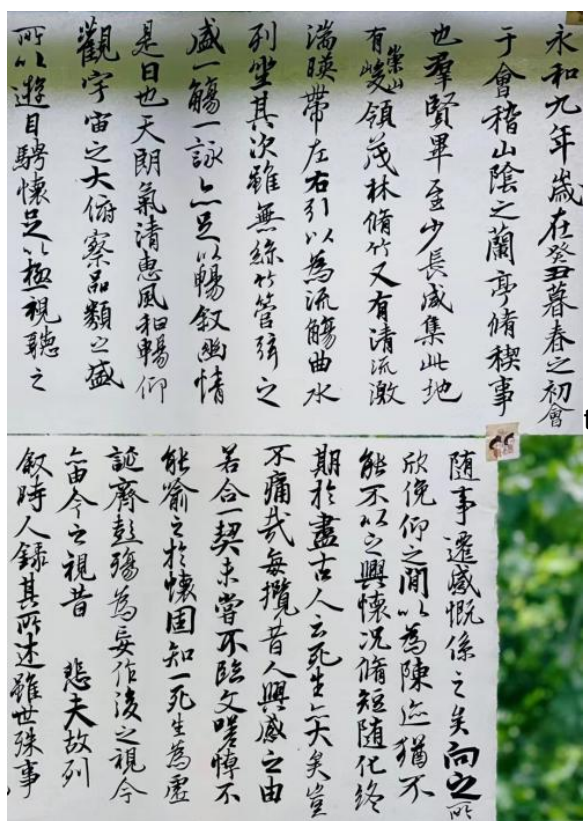 永和九年歲在癸丑暮春之初會
于會稽山陰之蘭亭脩稧事
也羣賢畢至少長咸集此地
有崇山峻領茂林脩竹又有清流激
湍暎帶左右引以為流觴曲水
列坐其次雖無絲竹管弦之
盛一觴一詠亦足以暢敘幽情
是日也天朗氣清惠風和暢仰
觀宇宙之大俯察品類之盛
所以遊目騁懷足以極視聽之
隨事遷感慨係之矣向之所
欣俛仰之閒以為陳迹猶不
能不以之興懷況脩短隨化終
期於盡古人云死生亦大矣豈
不痛哉每攬昔人興感之由
若合一契未嘗不臨文嗟悼不
能喻之於懷固知一死生為虛
誕齊彭殤為妄作後之視今
亦由今之視昔 悲夫故列
敘時人錄其所述雖世殊事